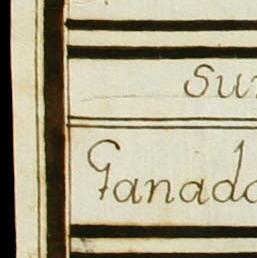 Su
Ganado